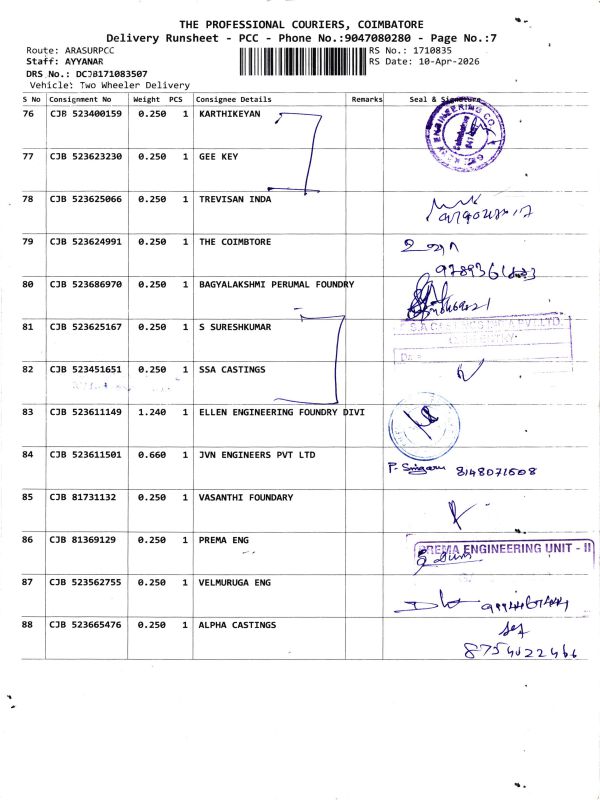 THE PROFESSIONAL COURIERS, COIMBATORE
Delivery Runsheet - PCC - Phone No.:9047080280 - Page No.:7
Route: ARASURPCC RS No.: 1710835
Staff: AYYANAR RS Date: 10-Apr-2026
DRS No.: DCJB171083507
Vehicle: Two Wheeler Delivery
S No Consignment No Weight PCS Consignee Details Remarks Seal & Signature
76 CJB 523400159 0.250 1 KARTHIKEYAN
ENGINEERING CO
77 CJB 523623230 0.250 1 GEE KEY
78 CJB 523625066 0.250 1 TREVISAN INDA
79 CJB 523624991 0.250 1 THE COIMBTORE
80 CJB 523686970 0.250 1 BAGYALAKSHMI PERUMAL FOUNDRY
81 CJB 523625167 0.250 1 S SURESHKUMAR
PVT.LTD.
82 CJB 523451651 0.250 1 SSA CASTINGS
83 CJB 523611149 1.240 1 ELLEN ENGINEERING FOUNDRY DIVI
84 CJB 523611501 0.660 1 JVN ENGINEERS PVT LTD
8148071508
85 CJB 81731132 0.250 1 VASANTHI FOUNDARY
86 CJB 81369129 0.250 1 PREMA ENG
PREMA ENGINEERING UNIT - II
87 CJB 523562755 0.250 1 VELMURUGA ENG
88 CJB 523665476 0.250 1 ALPHA CASTINGS
8754022466